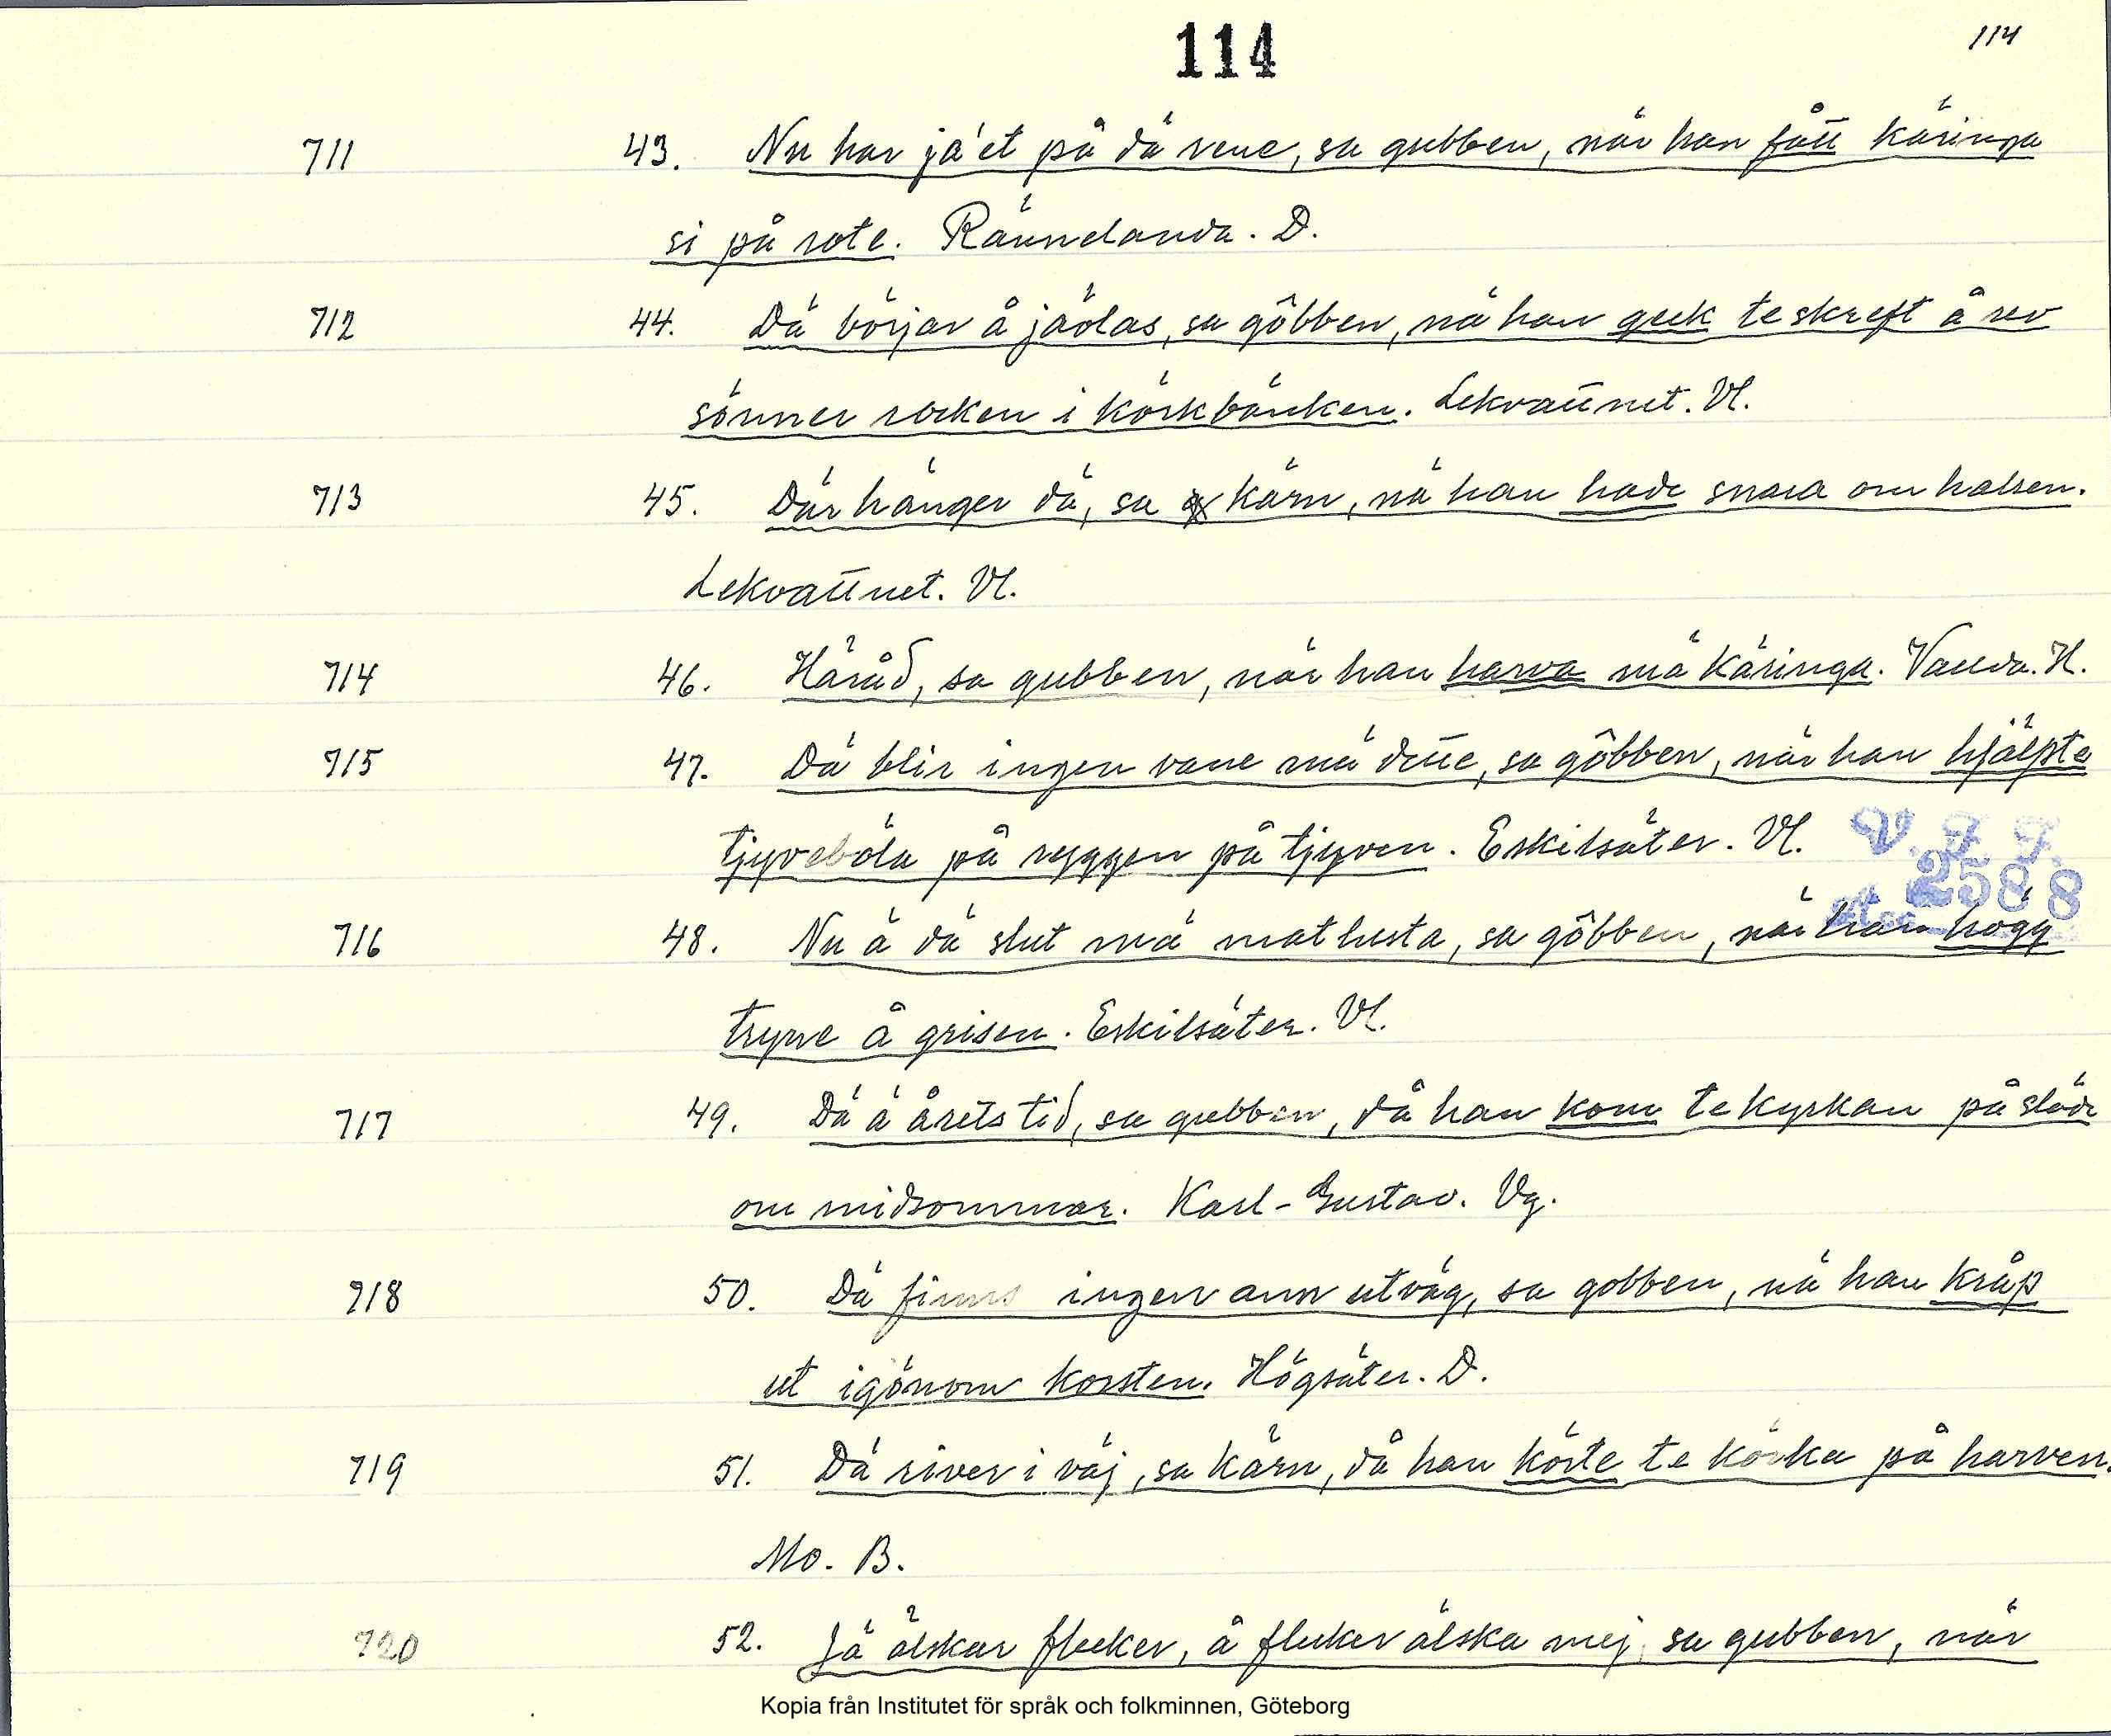 114
114
711 43. Nu har jä'et på dä rene, sa gubben, när han fått käringa
si på rote. Rännelanda. D.
712 44. Dä börjar å jäolas, sa gôbben, nä han geck te skreft å rev
sönner rocken i körkbänken. Lekvattnet. Vl.
713 45. Där hänger dä, sa kärn, nä han hade snara om halsen.
Lekvattnet. Vl.
714 46. Häråd, sa gubben, när han harva mä käringa. Vanda. H.
715 47. Dä blir ingen vane mä dette, sa gôbben, när han hjälpte
tjyveböla på ryggen på tjyven. Eskilsäter. Vl.
V. F. F.
2588
716 48. Nu ä dä slut mä matlusta, sa gôbben, när han högg
tryne å grisen. Eskilsäter. Vl.
717 49. Dä ä årets tid, sa gubben, då han kom te kyrkan på släde
om midsommar. Karl-Gustav. Vg.
718 50. Dä finns ingen ann utväg, sa gobben, nä han kråp
ut igönom korsten. Högsäter. D.
719 51. Dä river i väj, sa kärn, då han körte te körka på harven.
Mo. B.
720 52. Jä älskar flecker, å flecker älska mej, sa gubben, när
Kopia från Institutet för språk och folkminnen, Göteborg